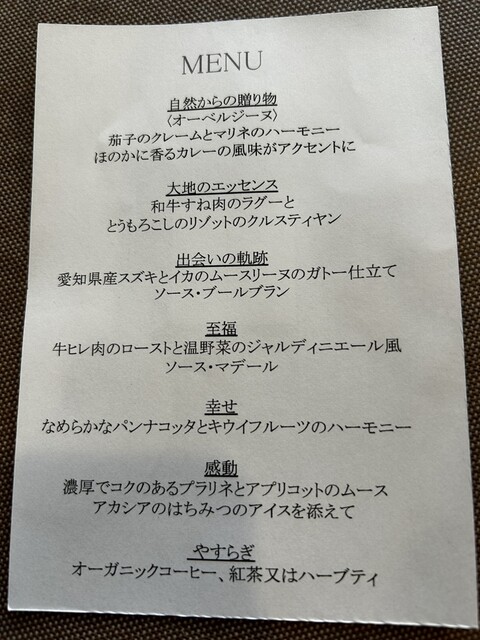 MENU
自然からの贈り物
〈オーベルジーヌ〉
茄子のクレームとマリネのハーモニー
ほのかに香るカレーの風味がアクセントに
大地のエッセンス
和牛すね肉のラグーと
とうもろこしのリゾットのクルスティヤン
出会いの軌跡
愛知県産スズキとイカのムースリーヌのガトー仕立て
ソース・ブールブラン
至福
牛ヒレ肉のローストと温野菜のジャルディニエール風
ソース・マデール
幸せ
なめらかなパンナコッタとキウイフルーツのハーモニー
感動
濃厚でコクのあるプラリネとアプリコットのムース
アカシアのはちみつのアイスを添えて
やすらぎ
オーガニックコーヒー、紅茶又はハーブティ